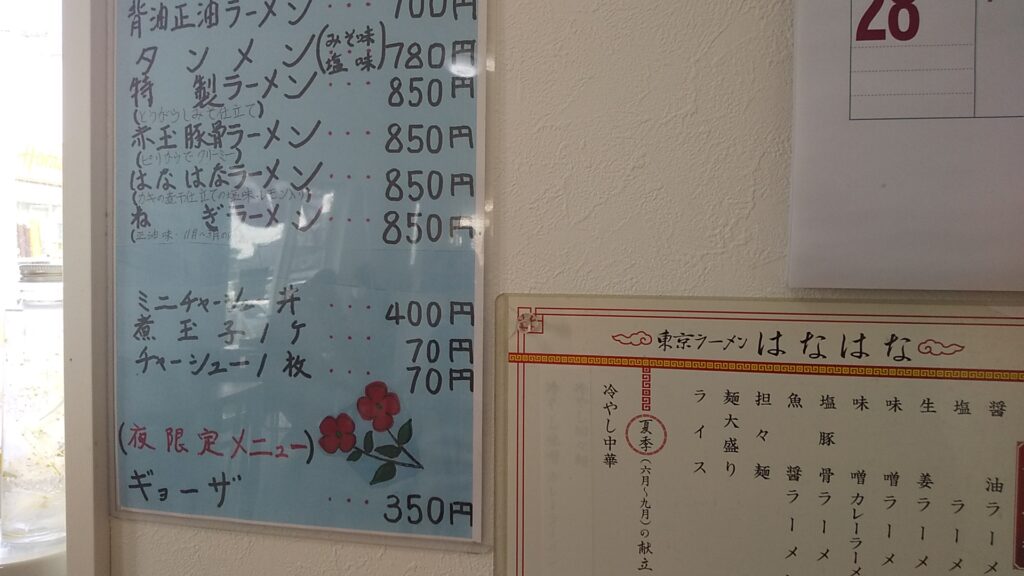 背油正油ラーメン ・・・ 700円
タンメン(みそ味 塩味)780円
特製ラーメン ・・・ 850円
(とうがらしみそ仕立て)
赤玉豚骨ラーメン ・・・ 850円
(ピリカラでクリーミー)
はなはなラーメン ・・・ 850円
ねぎラーメン ・・・ 850円
ミニチャーシュー丼 ・・・ 400円
煮玉子1ケ ・・・ 70円
チャーシュー1枚 ・・・ 70円
(夜限定メニュー)
ギョーザ ・・・ 350円
28
東京ラーメン はなはな
醤油ラー
塩ラー
生姜ラーメ
味噌ラーメ
味噌カレーラーメ
塩豚骨ラーメ
魚醤ラーメ
担々麺
麺大盛り
ライス
夏季(六月~九月)の献立
冷やし中華